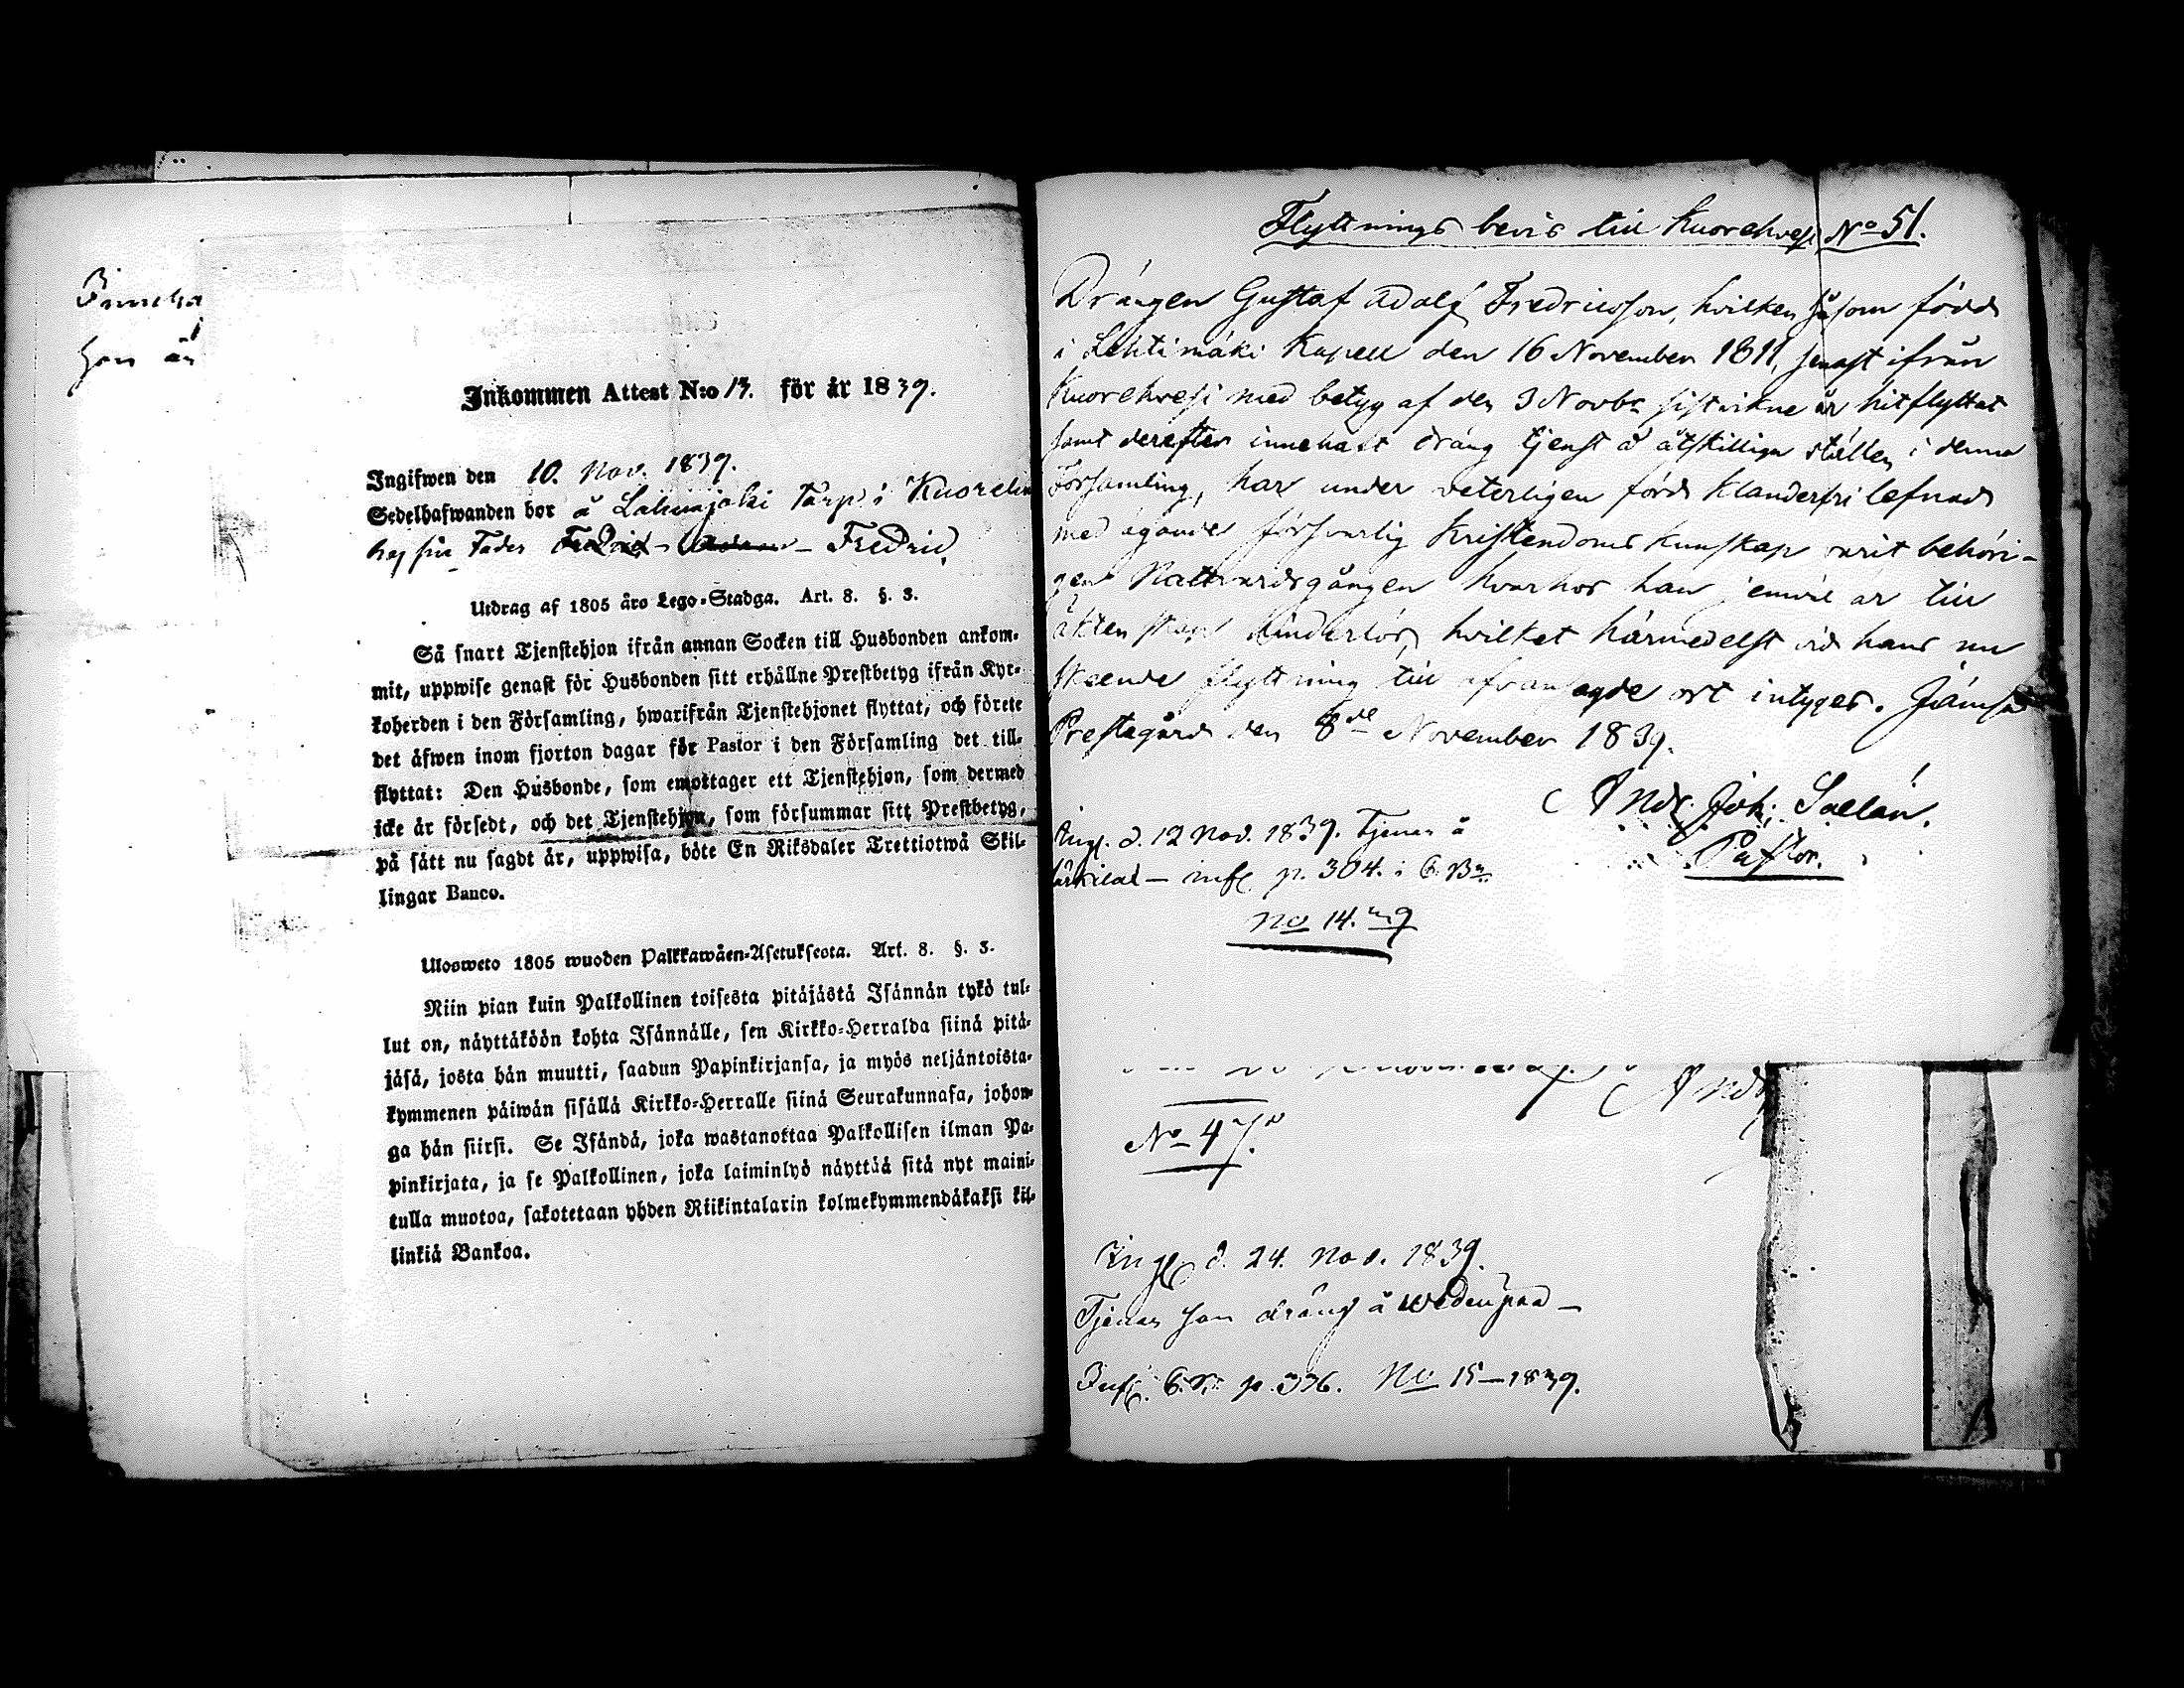 Inneha
han är
Inkommen Attest N:o 13. för år 1839.
Ingifwen den 10. Nov. 1839.
Sedelhafwanden bor å Torp i
hos sin Fader Fredric
Utdrag af 1805 års Lego-Stadga. Art. 8. §. 3.
Så snart Tjenstehjon ifrån annan Socken till Husbonden ankom-
mit, uppwise genast för Husbonden sitt erhållne Prestbetyg ifrån Kyr-
koherden i den Församling, hwarifrån Tjenstehjonet flyttat, och förete
det äfwen inom fjorton dagar för Pastor i den Församling det till-
flyttat: Den Husbonde, som emottager ett Tjenstehjon, som dermed
icke är försedt, och det Tjenstehjon, som försummar sitt Prestbetyg,
på sätt nu sagdt är, uppwisa, böte En Riksdaler Trettiotwå Skil-
lingar Banco.
Ulosweto 1805 wuoden Palkkawäen-Asetuksesta. Art. 8. §. 3.
Niin pian kuin Palkollinen toisesta pitäjästä Isännän tykö tul-
lut on, näyttäköön kohta Isännälle, sen Kirkko-Herralda siinä pitä-
jäsä, josta hän muutti, saadun Papinkirjansa, ja myös neljäntoista-
kymmenen päiwän sisällä Kirkko-Herralle siinä Seurakunnasa, johon-
ga hän siirsi. Se Isändä, joka wastanottaa Palkollisen ilman Pa-
pinkirjata, ja se Palkollinen, joka laiminlyö näyttää sitä nyt maini-
tulla muotoa, sakotetaan yhden Riikintalarin kolmekymmendäkaksi kil-
linkiä Bankoa.
Flyttnings bevis till Kuorehvesi No 51.
Drängen Gustaf Adolf Fredricsson, hvilken såsom född
i Lehtimäki Kapell den 16 November 1811, senast ifrån
Kuorehvesi med betyg af den 3 Novbr sistvikne år hitflyttat
samt derefter innehaft dräng tjenst å åtskilliga ställen i denna
Församling, har under veterligen förd klanderfri lefnad
med ägande försvarlig Kristendoms kunskap varit behöri-
gen Nattvardsgången hvarhos han jemväl är till
äktenskap hinderlös, hvilket härmedelst vid hans nu
skeende flyttning till ofvansagde ort intyges. Jämsä
Prestagård den 8de November 1839.
Andr. Joh: Saelán.
Pastor.
Ingf. d. 12 Nov. 1839. Tjenar å
infl. p. 304. i C. B.
No 14. 39
Andr
No 47.
Ingf d. 24. Nov. 1839.
Tjenar som dräng å
Infl. C.B. p. 336. No 15-1839.